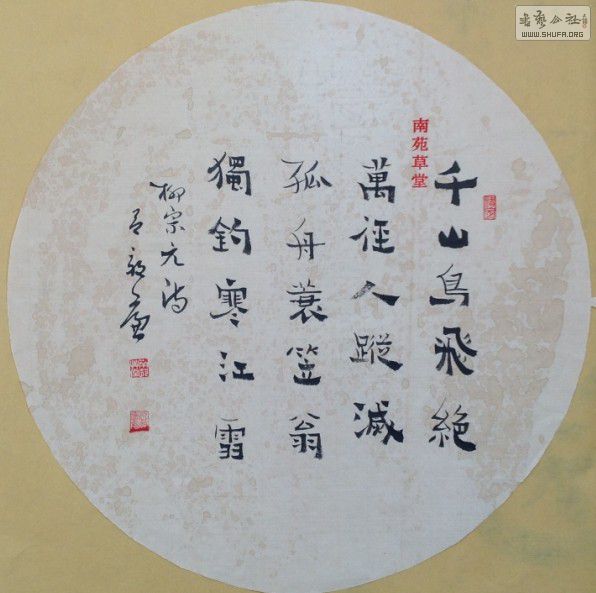 千山鳥飛絶
萬徑人蹤滅
孤舟蓑笠翁
獨釣寒江雪
柳宗元詩
南苑草堂
书艺公社
WWW.SHUFA.ORG